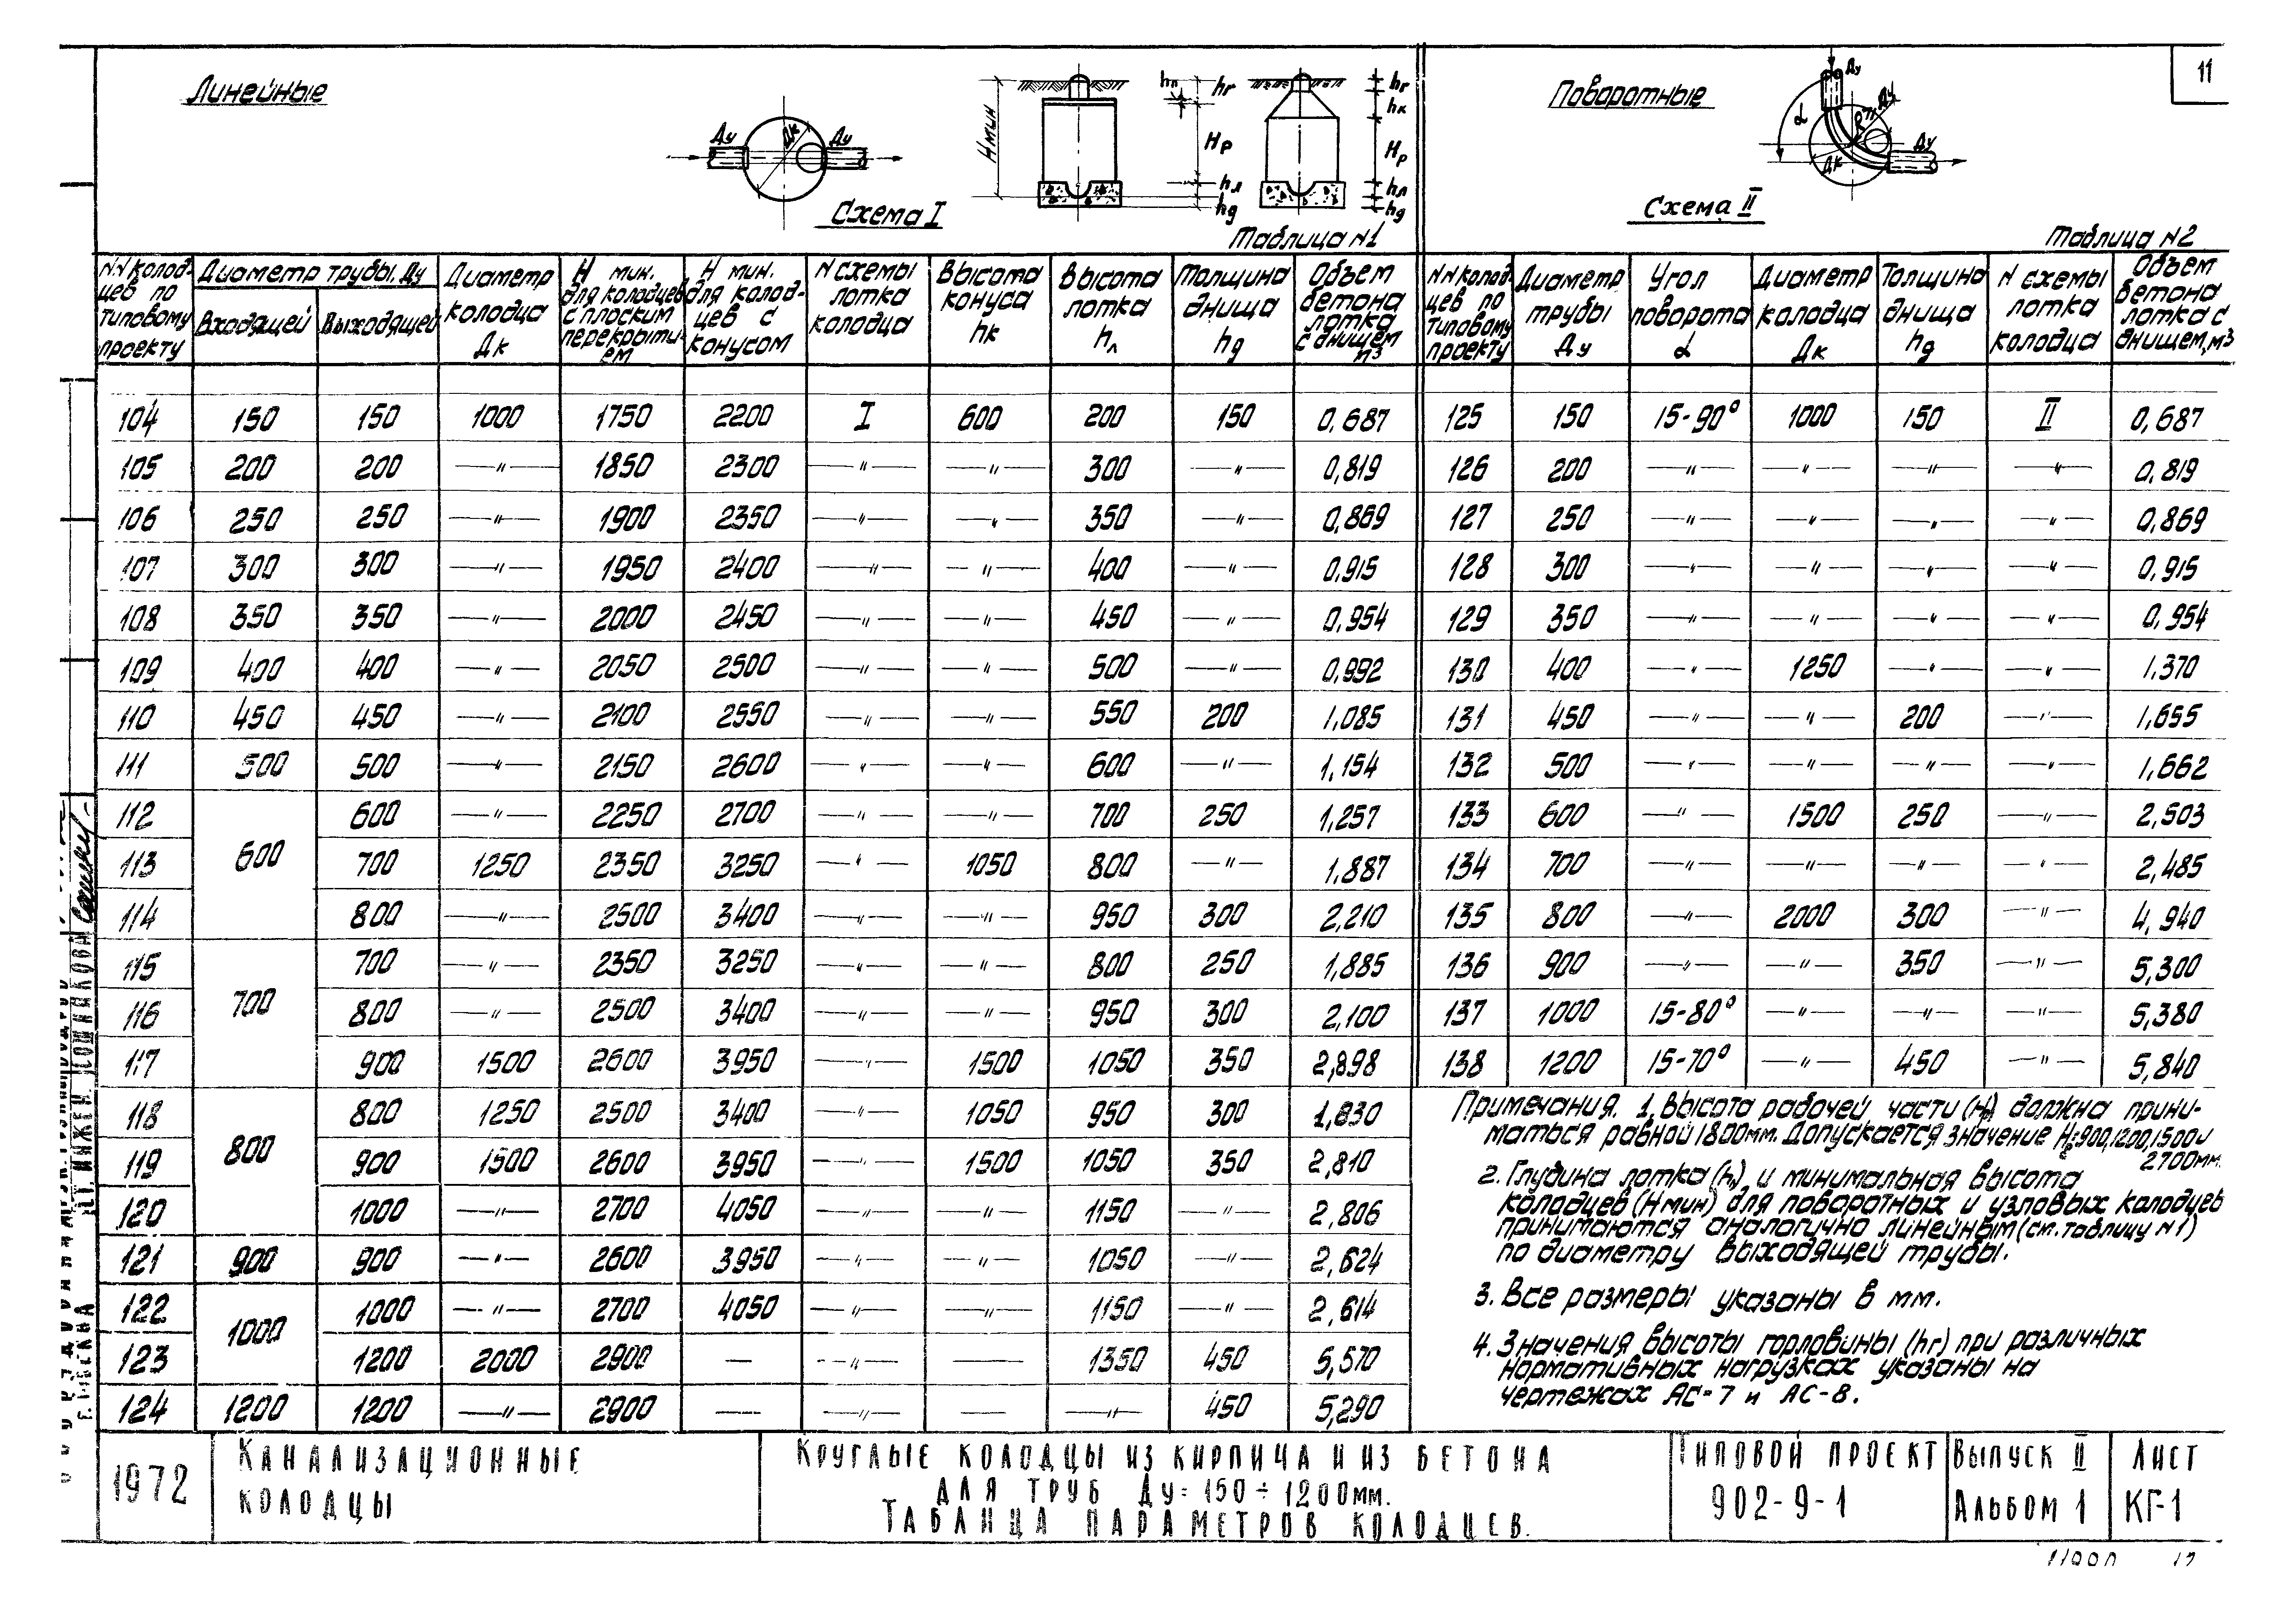 11
Линейные
Ду Дк Ду
Схема I
Hмин
hп hг
Hр
hл
hд
hг
hк
Hр
hл
hд
Таблица №1
Поворотные
Ду
α
Дк
Ду
Схема II
Таблица №2
NN колодцев по типовому проекту | Диаметр трубы, Ду | Диаметр колодца Дк | H мин. для колодцев с плоским перекрытием | H мин. для колодцев с конусом | N схемы лотка колодца | Высота конуса hк | Высота лотка hл | Толщина днища hд | Объем бетона лотка с днищем м³
Входящей | Выходящей
104 150 150 1000 1750 2200 I 600 200 150 0,687
105 200 200 —"— 1850 2300 —"— —"— 300 —"— 0,819
106 250 250 —"— 1900 2350 —"— —"— 350 —"— 0,869
107 300 300 —"— 1950 2400 —"— —"— 400 —"— 0,915
108 350 350 —"— 2000 2450 —"— —"— 450 —"— 0,954
109 400 400 —"— 2050 2500 —"— —"— 500 —"— 0,992
110 450 450 —"— 2100 2550 —"— —"— 550 200 1,085
111 500 500 —"— 2150 2600 —"— —"— 600 —"— 1,154
112 600 600 —"— 2250 2700 —"— —"— 700 250 1,257
113 700 1250 2350 3250 —"— 1050 800 —"— 1,887
114 800 —"— 2500 3400 —"— —"— 950 300 2,210
115 700 700 —"— 2350 3250 —"— —"— 800 250 1,885
116 800 —"— 2500 3400 —"— —"— 950 300 2,100
117 900 1500 2600 3950 —"— 1500 1050 350 2,898
118 800 800 1250 2500 3400 —"— 1050 950 300 1,830
119 900 1500 2600 3950 —"— 1500 1050 350 2,810
120 1000 —"— 2700 4050 —"— —"— 1150 —"— 2,806
121 900 900 —"— 2600 3950 —"— —"— 1050 —"— 2,624
122 1000 1000 —"— 2700 4050 —"— —"— 1150 —"— 2,614
123 1200 2000 2900 — —"— — 1350 450 5,570
124 1200 1200 —"— 2900 — —"— — —"— 450 5,290
NN колодцев по типовому проекту | Диаметр трубы Ду | Угол поворота α | Диаметр колодца Дк | Толщина днища hд | N схемы лотка колодца | Объем бетона лотка с днищем, м³
125 150 15-90° 1000 150 II 0,687
126 200 —"— —"— —"— —"— 0,819
127 250 —"— —"— —"— —"— 0,869
128 300 —"— —"— —"— —"— 0,915
129 350 —"— —"— —"— —"— 0,954
130 400 —"— 1250 —"— —"— 1,370
131 450 —"— —"— 200 —"— 1,655
132 500 —"— —"— —"— —"— 1,662
133 600 —"— 1500 250 —"— 2,503
134 700 —"— —"— —"— —"— 2,485
135 800 —"— 2000 300 —"— 4,940
136 900 —"— —"— 350 —"— 5,300
137 1000 15-80° —"— —"— —"— 5,380
138 1200 15-70° —"— 450 —"— 5,840
Примечания. 1. Высота рабочей части (Hр) должна прини-
маться равной 1800мм. Допускается значение Hр=900,1200,1500 и
2700мм.
2. Глубина лотка (hл) и минимальная высота
колодцев (Hмин) для поворотных и узловых колодцев
принимаются аналогично линейным (см. таблицу №1)
по диаметру выходящей трубы.
3. Все размеры указаны в мм.
4. Значения высоты горловины (hг) при различных
нормативных нагрузках указаны на
чертежах АС-7 и АС-8.
1972
Канализационные
колодцы
Круглые колодцы из кирпича и из бетона
для труб Ду=150÷1200мм.
Таблица параметров колодцев.
Типовой проект
902-9-1
Выпуск II
Альбом 1
Лист
КГ-1